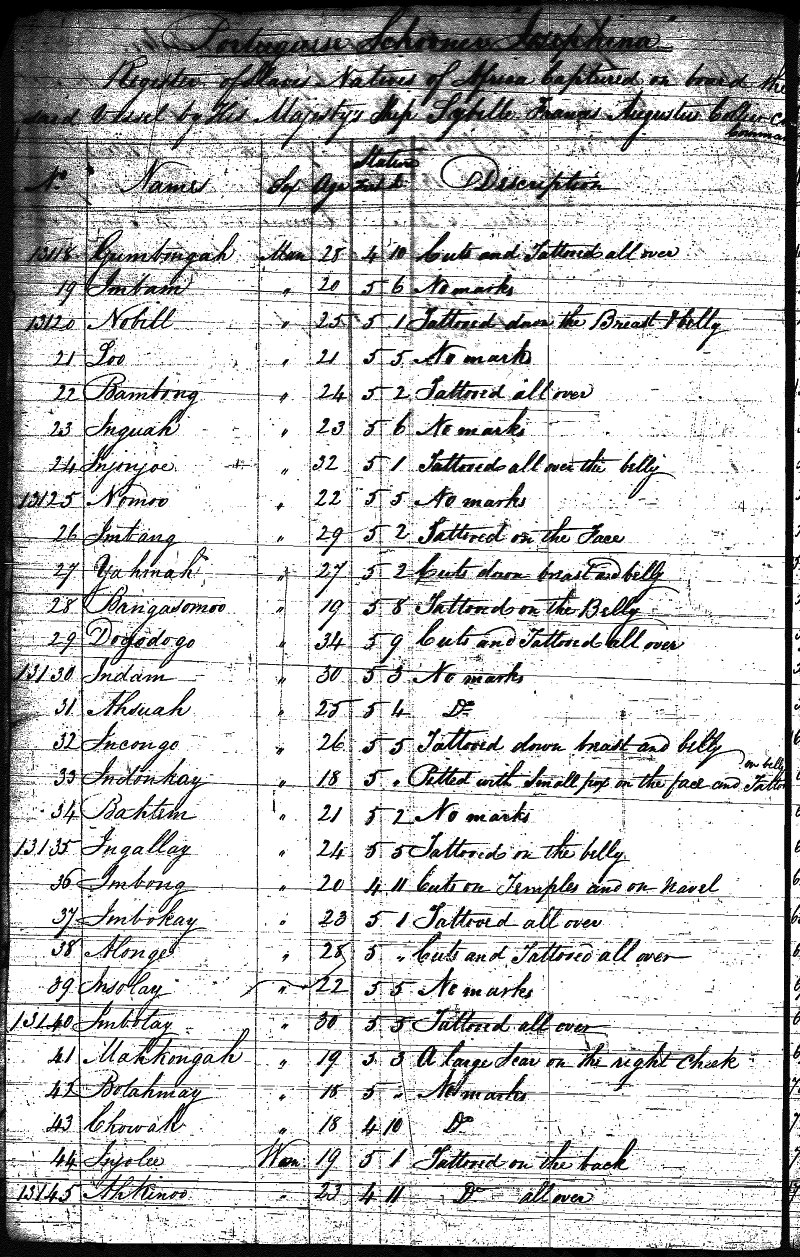 Portuguese Schooner "Josephina"
Register of Slaves Natives of Africa Captured on board the
said Vessel by His Majesty's Ship Sybille Francis Augustus Collier
Comman
No. Names Sex Age Stature Feet In Description
13118 Gumbongah Man 25 4 10 Cuts and Tattooed all over
19 Imbam " 20 5 6 No marks
13120 Nobill " 25 5 1 Tattooed down the Breast & belly
21 Loo " 21 5 5 No mark
22 Bambong " 24 5 2 Tattooed all over
23 Inguah " 23 5 6 No marks
24 Injonjoe " 32 5 1 Tattooed all over the belly
13125 Nomoo " 22 5 5 No marks
26 Imtang " 29 5 2 Tattooed on the Face
27 Yahinah " 27 5 2 Cuts down breast and belly
28 Bangasomoo " 19 5 8 Tattooed on the Belly
29 Dogodogo " 34 5 9 Cuts and Tattooed all over
13130 Indam " 30 5 3 No marks
31 Ahsuah " 25 5 4 Do
32 Incongo " 26 5 5 Tattooed down breast and belly
33 Indonkay " 18 5 " Pitted with Small pox on the face and Tattoo on belly
34 Bahtim " 21 5 2 No marks
13135 Ingallay " 24 5 5 Tattooed on the belly
36 Imbong " 20 4 11 Cuts on Temples and on Navel
37 Imbokay " 23 5 1 Tattooed all over
38 Alonge " 28 5 " Cuts and Tattooed all over
39 Insolay " 22 5 5 No marks
13140 Imbotay " 30 5 5 Tattooed all over
41 Mahkongah " 19 5 3 A large Scar on the right cheek
42 Botahmay " 18 5 " No marks
43 Chowah " 18 4 10 Do
44 Injolee Wom 19 5 1 Tattooed on the back
13145 Ahkinoo " 23 4 11 Do all over